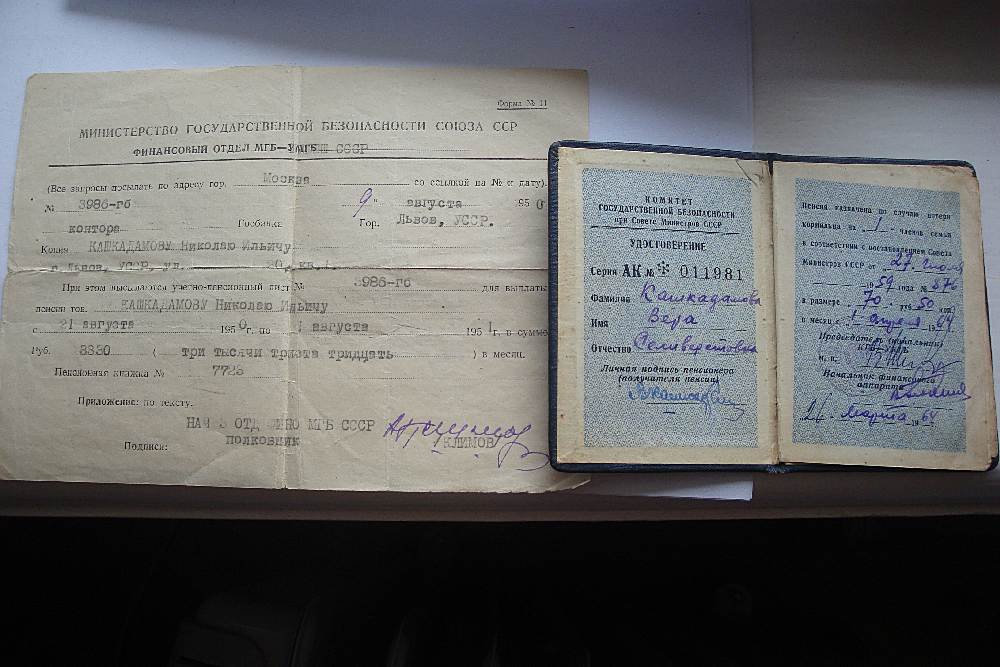 Форма № 11
МИНИСТЕРСТВО ГОСУДАРСТВЕННОЙ БЕЗОПАСНОСТИ СОЮЗА ССР
ФИНАНСОВЫЙ ОТДЕЛ МГБ—УМГБ СССР
(Все запросы посылать по адресу гор. Москва со ссылкой на № и дату).
№ 3986-гб 9 августа 1950
контора Госбанка Гор. Львов, УССР.
Копия КАШКАДАМОВУ Николаю Ильичу
г. Львов, УССР, ул. 30, кв. 1.
При этом высылается учетно-пенсионный лист № 3986-гб для выплаты
пенсии тов. КАШКАДАМОВУ Николаю Ильичу
с 21 августа 1950 г. по 1 августа 1951 г. в сумме
Руб. 3330 ( три тысячи триста тридцать ) в месяц.
Пенсионная книжка № 7723
Приложение: по тексту.
НАЧ 3 ОТД ФИНО МГБ СССР
ПОЛКОВНИК КЛИМОВ
Подписи:
КОМИТЕТ
ГОСУДАРСТВЕННОЙ БЕЗОПАСНОСТИ
при Совете Министров СССР
УДОСТОВЕРЕНИЕ
Серия АК № 011981
Фамилия Кашкадамова
Имя Вера
Отчество Селиверстовна
Личная подпись пенсионера
(получателя пенсии)
Пенсия назначена по случаю потери
кормильца на 1 членов семьи
в соответствии с постановлением Совета
Министров СССР от 27 июля
1959 года № 876
в размере 70 руб 50 коп.
в месяц с 1 апреля 1964
Председатель (начальник)
м. п.
Начальник финансового
аппарата
26 марта 1964